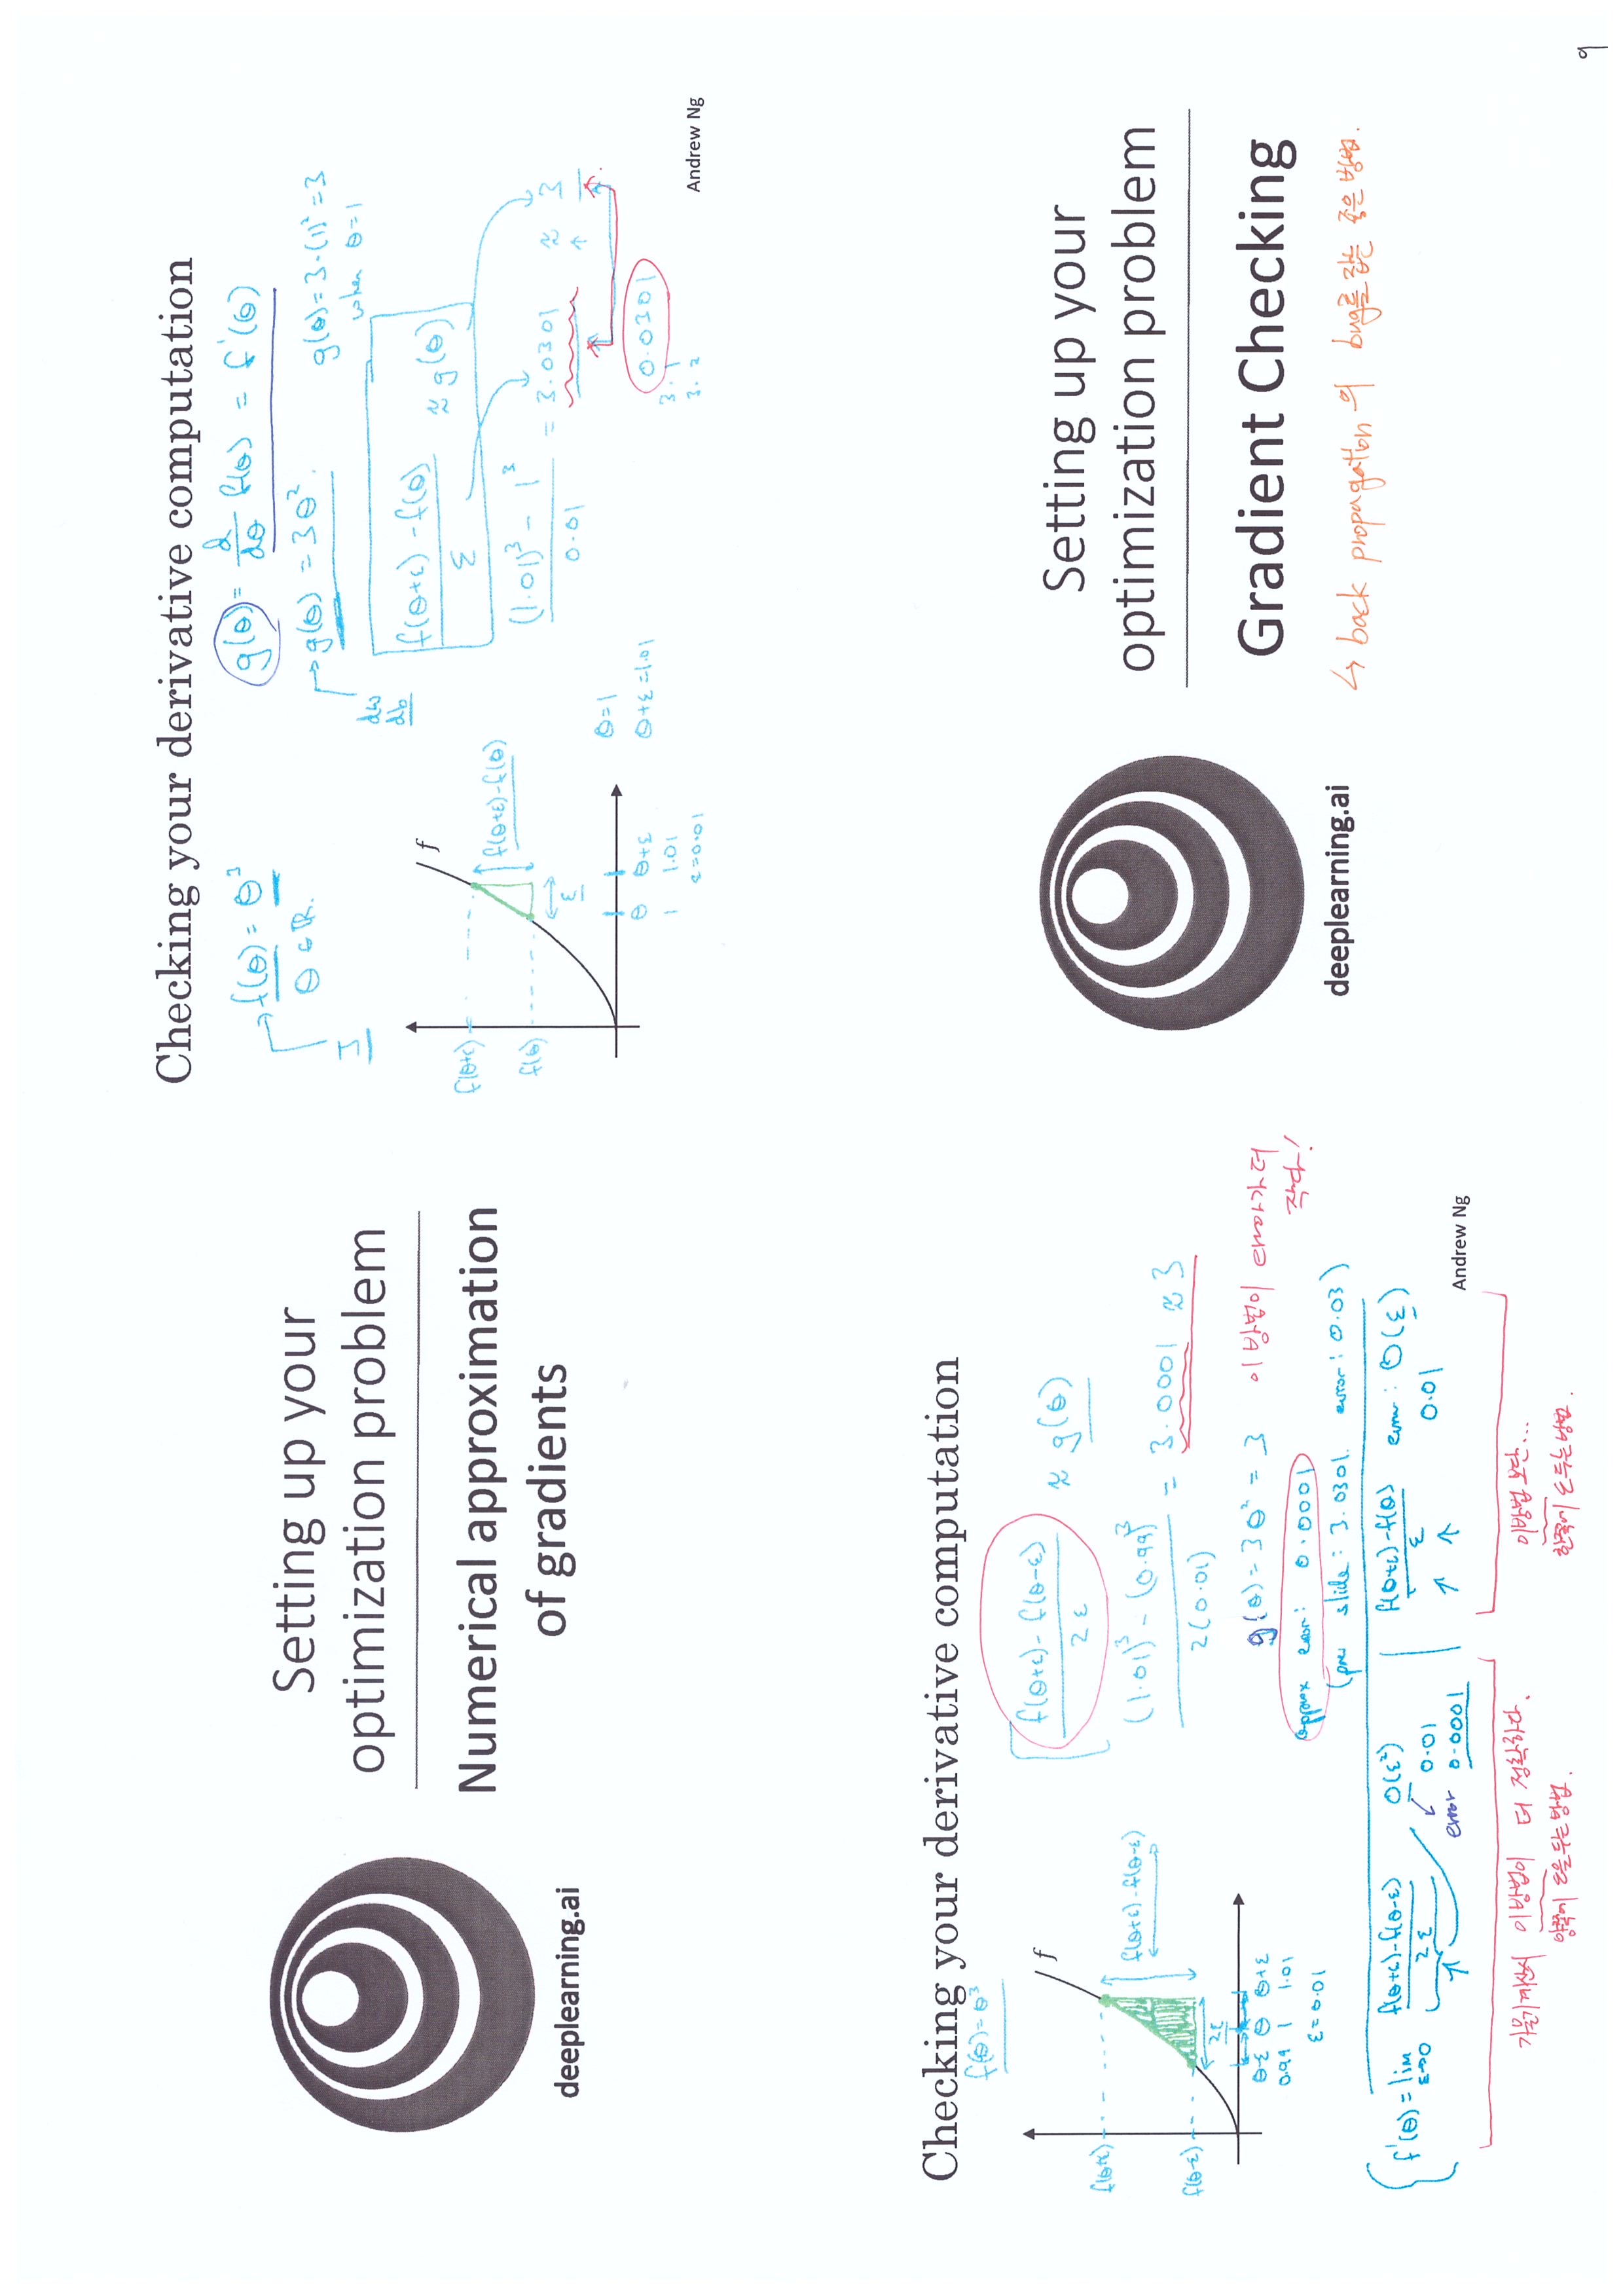 Setting up your
optimization problem
Numerical approximation
of gradients
deeplearning.ai
Checking your derivative computation
f(θ) = θ³
θ ∈ ℝ.
J
g(θ) = d/dθ f(θ) = f'(θ)
g(θ) = 3θ².
g(θ) = 3·(1)² = 3
when θ=1
dw
db
f(θ+ε) - f(θ) / ε ≈ g(θ)
(1.01)³ - 1³ / 0.01 = 3.0301 ≈ 3
0.0301
3.1
3.2
f
f(θ+ε)
f(θ)
f(θ+ε)-f(θ)
ε
θ θ+ε
1 1.01
ε=0.01
θ=1
θ+ε=1.01
Andrew Ng
Checking your derivative computation
f(θ)=θ³
f
f(θ+ε)
f(θ-ε)
f(θ+ε)-f(θ-ε)
2ε
θ-ε θ θ+ε
0.99 1 1.01
ε=0.01
f(θ+ε) - f(θ-ε) / 2ε ≈ g(θ)
(1.01)³ - (0.99)³ / 2(0.01) = 3.0001 ≈ 3
g(θ) = 3θ² = 3
이 방법이 error가 더
작다!
approx error: 0.0001
(prev slide: 3.0301. error: 0.03)
f'(θ) = lim ε→0 f(θ+ε)-f(θ-ε) / 2ε
O(ε²)
0.01
error 0.0001
f(θ+ε)-f(θ) / ε
error: O(ε)
0.01
Andrew Ng
기울기 계산시 이 방법이 더 정확하다.
양쪽에 ε을 두는 방법.
이 방법 보단...
한쪽에 ε 두는 방법.
Setting up your
optimization problem
Gradient Checking
deeplearning.ai
↳ back propagation의 bug를 잡는 좋은 방법.
9